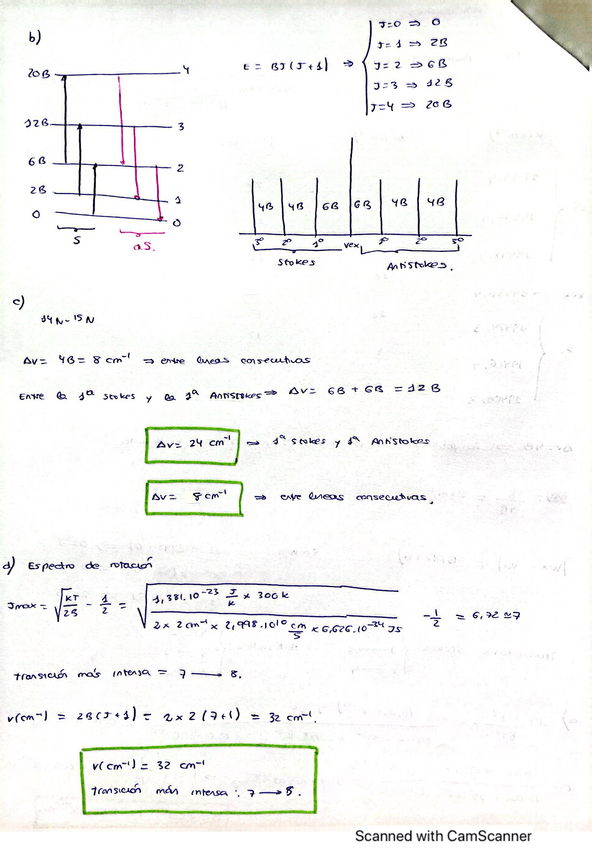 b)
E = BJ(J+1) ⇒
J=0 ⇒ 0
J=1 ⇒ 2B
J=2 ⇒ 6B
J=3 ⇒ 12B
J=4 ⇒ 20B
20B 4
12B 3
6B 2
2B 1
0 0
S as.
4B 4B 6B 6B 4B 4B
3º 2º 1º νex 1º 2º 3º
Stokes Antistokes.
c)
14N-15N
Δν = 4B = 8 cm⁻¹ ⇒ entre lineas consecutivas
Entre la 1ª Stokes y la 1ª Antistokes ⇒ Δν = 6B + 6B = 12B
Δν = 24 cm⁻¹ ⇒ 1ª Stokes y 1ª Antistokes
Δν = 8 cm⁻¹ ⇒ entre lineas consecutivas.
d) Espectro de rotación
Jmax = √(KT/2B) - 1/2 = √(1,381.10⁻²³ J/K x 300K / 2 x 2cm⁻¹ x 2,998.10¹⁰ cm/s x 6,626.10⁻³⁴ Js) - 1/2 = 6,72 ≃ 7
Transición más intensa = 7 → 8.
ν(cm⁻¹) = 2B(J+1) = 2x2(7+1) = 32 cm⁻¹.
ν(cm⁻¹) = 32 cm⁻¹
Transición más intensa: 7 → 8.
Scanned with CamScanner